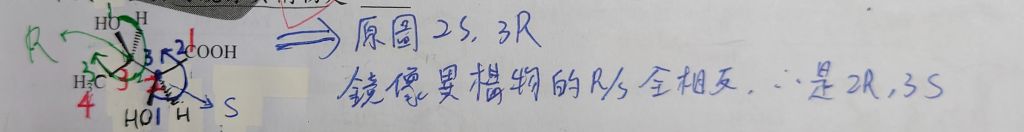 HO H
R 3 2 1 COOH
H₃C 3 2
4
HO H S
⟹ 原圖 2S, 3R
鏡像異構物的R/S全相反. ∴是2R,3S